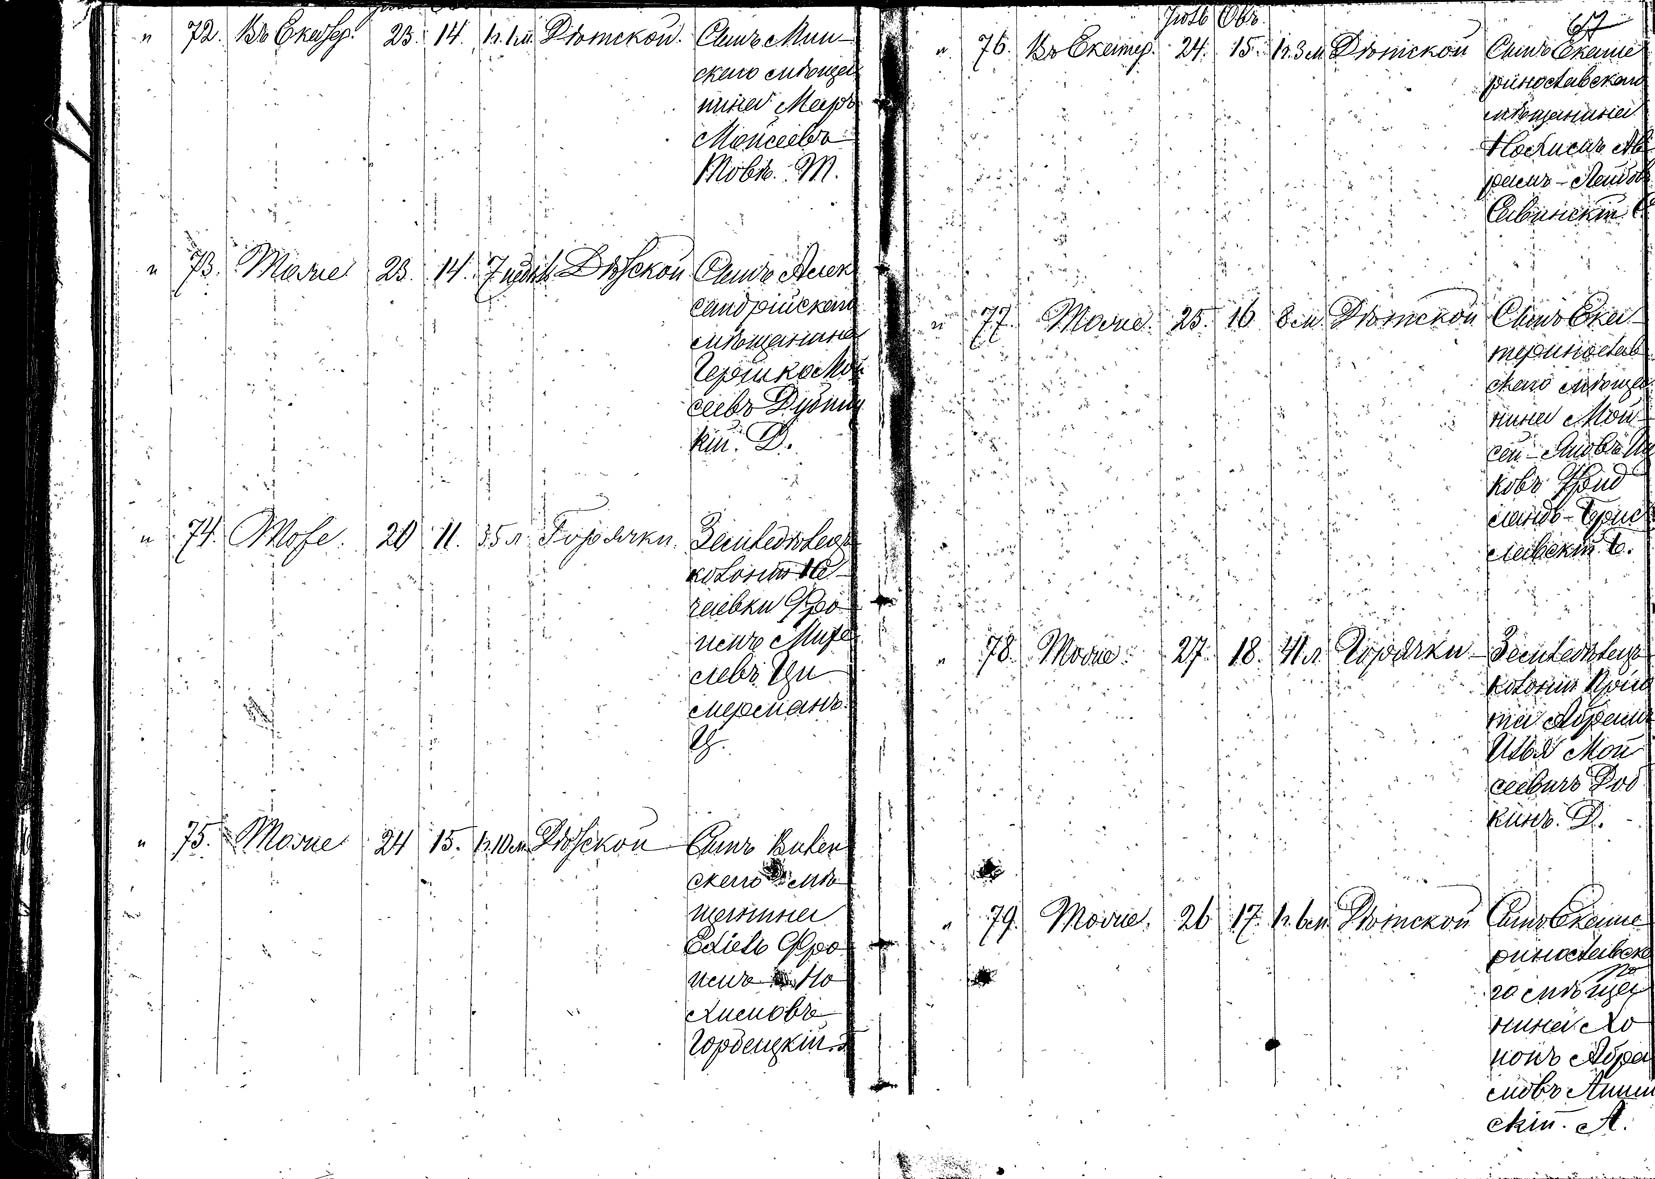 " 72. Въ Екатер. 23. 14. 1г. 1м. Дѣтской. Сынъ Мин-
скаго мѣща
нина Меръ
Моисеевъ
Товъ. Т.
" 73. Тоже 23. 14. 7 недѣль Дѣтской Сынъ Алек
сандрійскаго
мѣщанина
Гершко Мои
сеевъ Дубниц
кій. Д.
" 74. Тоже. 20 11. 35 л Горячки. Земледѣлецъ
колоніи Не-
чаевки Фро
имъ Михе
левъ Ци
мерманъ.
Ц.
" 75. Тоже 24 15. 1г. 10 м. Дѣтской Сынъ Вилен
скаго мѣ
щанина
Ехіель Фро
имъ Но
химовъ
Горбецкій. Г
67
Іюль Овъ.
" 76. Въ Екатер. 24. 15. 1г. 3м Дѣтской Сынъ Екате
ринославскаго
мѣщанина
Нохимъ Ав
рамъ-Лейбовъ
Савинскій С.
" 77. Тоже. 25. 16 8 м. Дѣтской Сынъ Ека-
теринослав
скаго мѣща
нина Мой-
сей-
ковъ Фрид
ландъ-Борис
лавскій Б.
" 78. Тоже. 27. 18. 41 л Горячки- Земледѣлецъ
колоніи
та Абрамъ
Илья Мои
сеевичъ Доб
кинъ. Д.
" 79. Тоже. 26 17. 1г. 6 м. Дѣтской Сынъ Екате
ринославска
го мѣща
нина Хо
нонъ Абра
мовъ
скій. А.